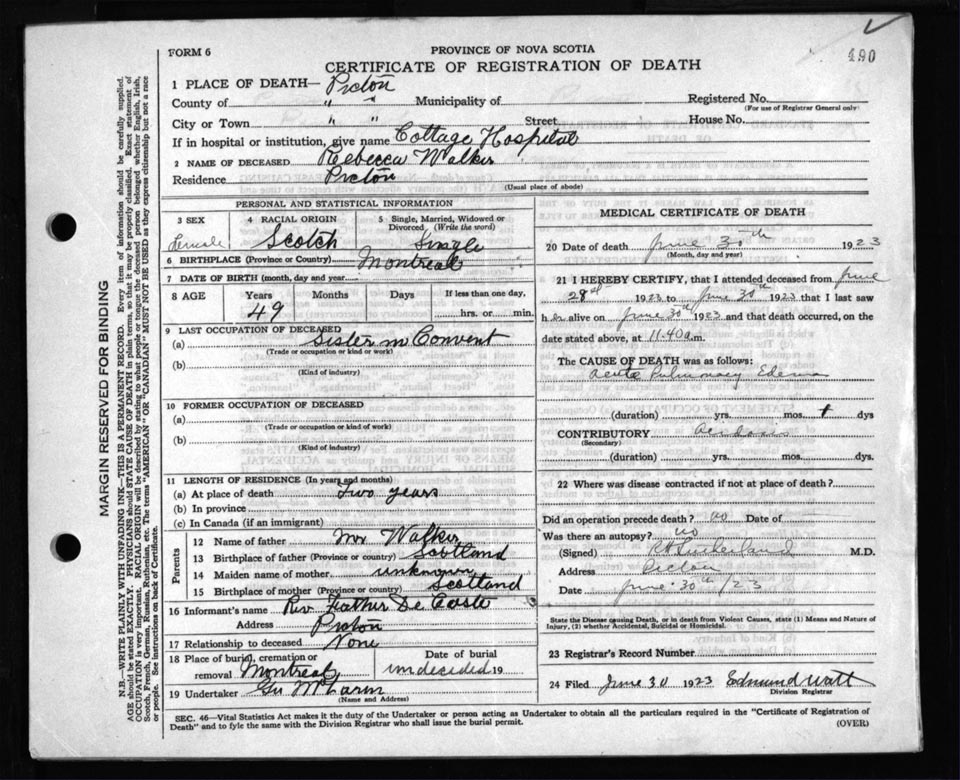 490
FORM 6
PROVINCE OF NOVA SCOTIA
CERTIFICATE OF REGISTRATION OF DEATH
1 PLACE OF DEATH— Pictou
County of " " Municipality of
Registered No.
(For use of Registrar General only)
City or Town " " Street House No.
If in hospital or institution, give name Cottage Hospital
2 NAME OF DECEASED Rebecca Walker
Residence Pictou
(Usual place of abode)
PERSONAL AND STATISTICAL INFORMATION
3 SEX Female
4 RACIAL ORIGIN Scotch
5 Single, Married, Widowed or Divorced (Write the word) Single
6 BIRTHPLACE (Province or Country) Montreal
7 DATE OF BIRTH (month, day and year)
8 AGE Years 49 Months Days If less than one day, hrs. or min.
9 LAST OCCUPATION OF DECEASED
(a) Sister in Convent
(Trade or occupation or kind or work)
(b)
(Kind of industry)
10 FORMER OCCUPATION OF DECEASED
(a)
(Trade or occupation or kind of work)
(b)
(Kind of industry)
11 LENGTH OF RESIDENCE (In years and months)
(a) At place of death Two years
(b) In province
(c) In Canada (if an immigrant)
Parents
12 Name of father Mr Walker
13 Birthplace of father (Province or country) Scotland
14 Maiden name of mother unknown
15 Birthplace of mother (Province or country) Scotland
16 Informant's name Rev. Father De Coste
Address Pictou
17 Relationship to deceased None
18 Place of burial, cremation or removal Montreal
Date of burial undecided 19
19 Undertaker
(Name and Address)
MEDICAL CERTIFICATE OF DEATH
20 Date of death June 30th 1923
(Month, day and year)
21 I HEREBY CERTIFY, that I attended deceased from June
28th 1923 to June 30th 1923 that I last saw
her alive on June 30th 1923 and that death occurred, on
date stated above, at 11.40 a.m.
The CAUSE OF DEATH was as follows:
Acute Pulmonary Edema
(duration) yrs. mos. 1 dys
CONTRIBUTORY
(Secondary)
(duration) yrs. mos. dys.
22 Where was disease contracted if not at place of death?
Did an operation precede death? no Date of
Was there an autopsy? no
(Signed) Sutherland M.D.
Address Pictou
Date June 30th /23
State the Disease causing Death, or in death from Violent Causes, state (1) Means and Nature of
Injury, (2) whether Accidental, Suicidal or Homicidal.
23 Registrar's Record Number
24 Filed June 30 1923 Edmund Watt
Division Registrar
SEC. 46—Vital Statistics Act makes it the duty of the Undertaker or person acting as Undertaker to obtain all the particulars required in the "Certificate of Registration of
Death" and to fyle the same with the Division Registrar who shall issue the burial permit.
(OVER)
MARGIN RESERVED FOR BINDING
N.B.—WRITE PLAINLY WITH UNFADING INK—THIS IS A PERMANENT RECORD. Every item of information should be carefully supplied.
AGE should be stated EXACTLY. PHYSICIANS should STATE CAUSE OF DEATH in plain terms, so that it may be properly classified. Exact statement of
OCCUPATION is very important. RACIAL ORIGIN will be described by stating to what people or tongue the deceased person belonged whether English, Irish,
Scotch, French, German, Russian, Ruthenian, etc. The terms "AMERICAN" OR "CANADIAN" MUST NOT BE USED as they express citizenship but not a race
or people. See instructions on back of Certificate.